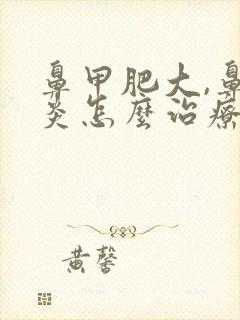 鼻甲肥大,鼻
炎怎麼治療
黃馨